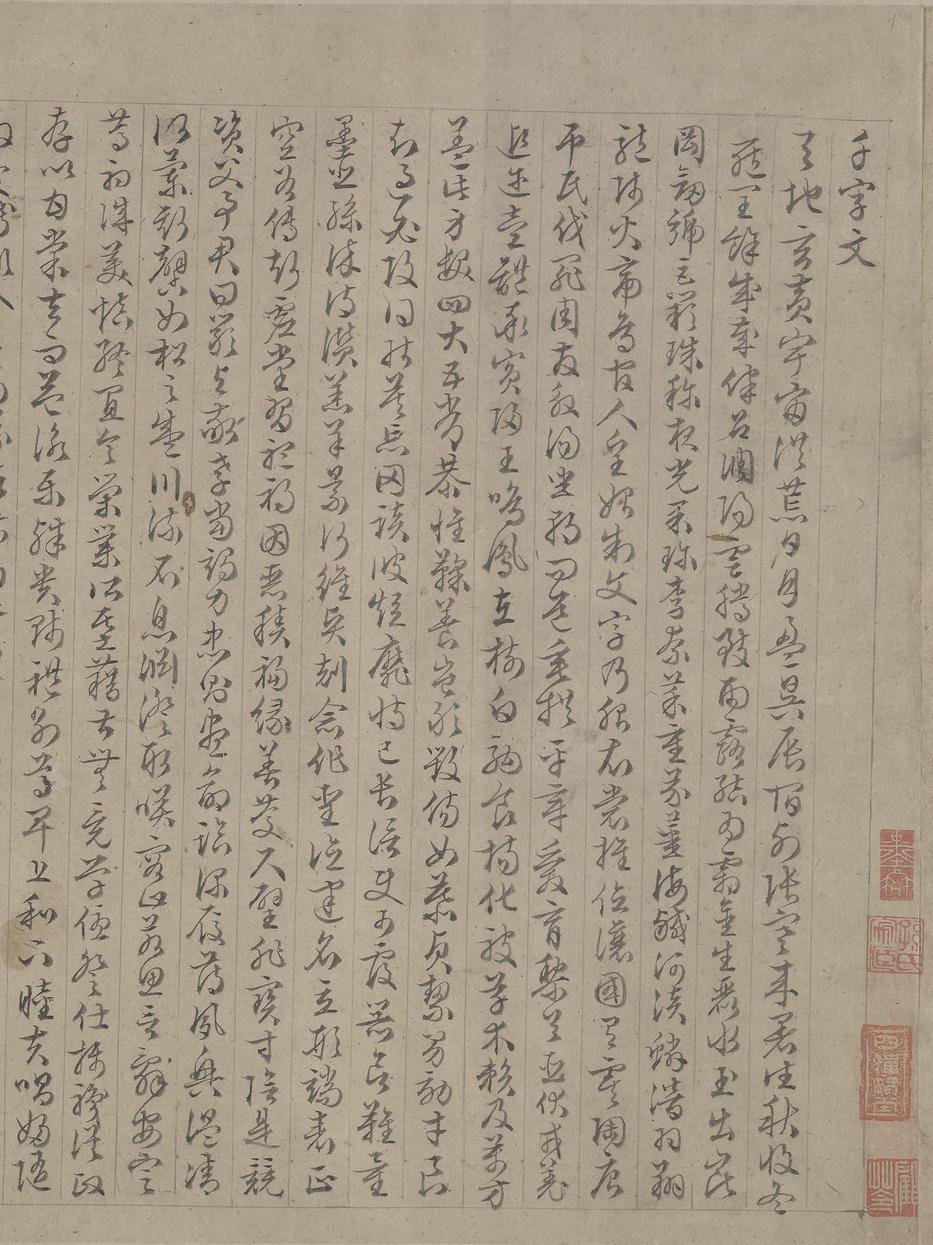 千字文
天地玄黃宇宙洪荒日月盈昃辰宿列張寒來暑往秋收冬
藏閏餘成歲律召調陽雲騰致雨露結為霜金生麗水玉出崑
岡劍號巨闕珠稱夜光菓珍李柰菜重芥薑海鹹河淡鱗潛羽翔
龍師火帝鳥官人皇始制文字乃服衣裳推位讓國有虞陶唐
弔民伐罪周發殷湯坐朝問道垂拱平章愛育黎首臣伏戎羌
遐邇壹體率賓歸王鳴鳳在樹白駒食場化被草木賴及萬方
蓋此身髮四大五常恭惟鞠養豈敢毀傷女慕貞絜男效才良
知過必改得能莫忘罔談彼短靡恃己長信使可覆器欲難量
墨悲絲染詩讚羔羊景行維賢剋念作聖德建名立形端表正
空谷傳聲虛堂習聽禍因惡積福緣善慶尺璧非寶寸陰是競
資父事君曰嚴與敬孝當竭力忠則盡命臨深履薄夙興溫清
似蘭斯馨如松之盛川流不息淵澄取暎容止若思言辭安定
篤初誠美慎終宜令榮業所基藉甚無竟學優登仕攝職從政
存以甘棠去而益詠樂殊貴賤禮別尊卑上和下睦夫唱婦隨